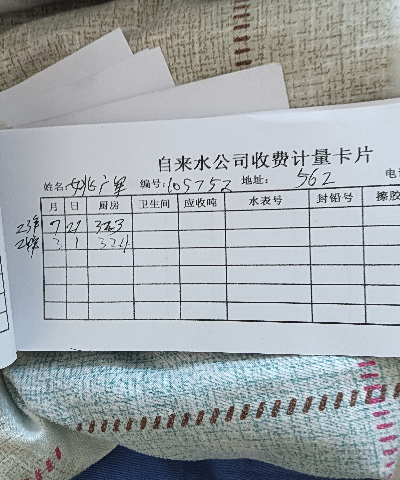 自来水公司收费计量卡片
姓名: 编号: 105752 地址: 562 电
月 日 厨房 卫生间 应收吨 水表号 封铅号 擦
23年 7 21 323
24年 3 1 324